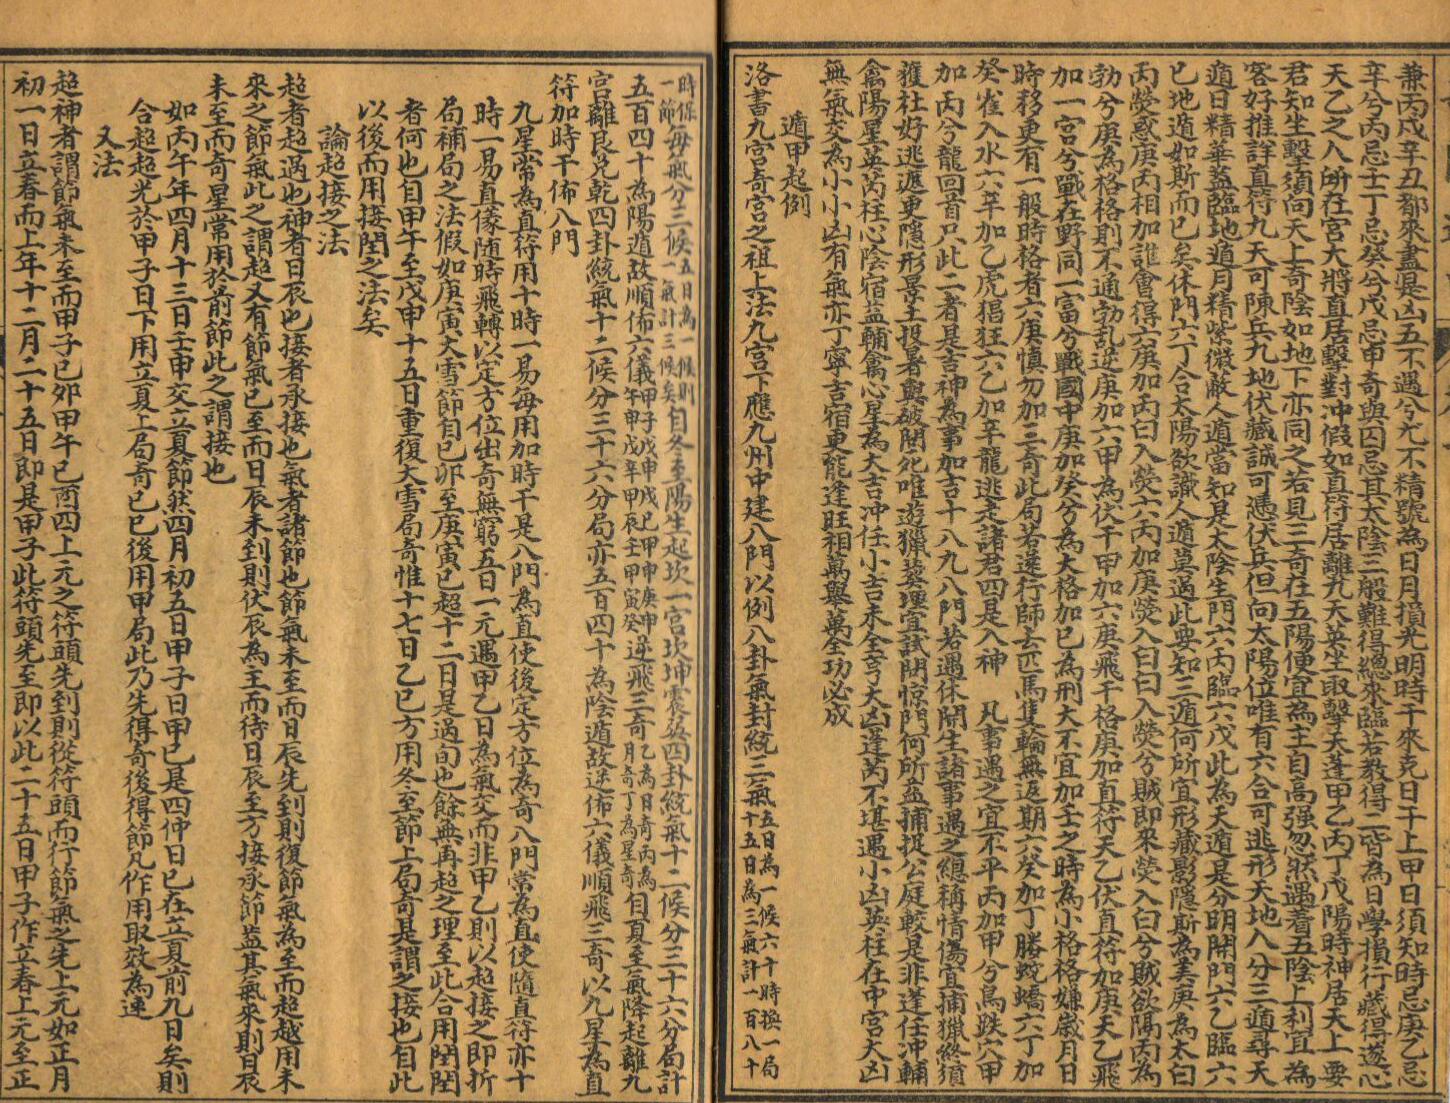 兼丙戌辛丑都來盡是凶五不遇兮尤不精號為日月損光明時干來克日干上甲日須知時忌庚乙忌
辛兮丙忌壬丁忌癸兮戊忌甲奇與囚忌其太陰三般難得總來臨若教得二皆為日學損行藏得遂心
天乙之人所在宮大將直居擊對冲假如直符居離九天英坐取擊天蓬甲乙丙丁戊陽時神居天上要
君知坐擊須向天上奇陰如地下亦同之若見三奇在五陽便宜為主自高強忽然遇着五陰上利宜為
客好推詳直符九天可陳兵九地伏藏誠可憑伏兵但向太陽位唯有六合可逃形天地人分三遁尋天
遁日精華蓋臨地遁月精紫微蔽人遁當知是太陰生門六丙臨六戊此為天遁是分明開門六乙臨六
已地遁如斯而已矣休門六丁合太陽欲識人遁莫過此要知三遁何所宜形藏影隱斯為美庚為太白
丙熒惑庚丙相加誰會得六庚加丙曰入熒六丙加庚熒入白白入熒兮賊即來熒入白兮賊欲隔丙為
勃兮庚為格格則不通勃亂逆庚加六甲為伏干甲加六庚飛干格庚加直符天乙伏直符加庚天乙飛
加一宮兮戰在野同一宮兮戰國中庚加癸兮為大格加已為刑大不宜加壬之時為小格格嫌歲月日
時移更有一般時格者六庚慎勿加三奇此局若遂行師去匹馬隻輪無返期六癸加丁螣蛇蟜六丁加
癸雀入水六辛加乙虎猖狂六乙加辛龍逃走諸君四是入神　凡事遇之宜不平丙加甲兮鳥跌穴甲
加丙兮龍回首只此二者是吉神為事加吉十八九八門若遇休開生諸事遇之總稱情傷宜捕獵終須
獲杜好逃遯更隱形景主投書與破開死唯遊獵葬埋宜試閉惊門何所益捕捉公庭較是非蓬任冲輔
禽陽星英芮柱心陰宿益輔禽心星為大吉冲任小吉未全亨大凶蓬芮不堪遇小凶英柱在中宮大凶
無氣交為小小凶有氣亦丁寧吉宿更能逢旺相萬舉萬全功必成
遁甲起例
洛書九宮奇宮之祖上法九宮下應九州中建八門以例八卦氣封統三氣五日為一候六十時換一局十五日為三氣計一百八十
時保一節每氣分三候五日為一候則一氣計三候矣自冬至陽生起坎一宮坎坤震巽四卦統氣十二候分三十六分局計
五百四十為陽遁故順佈六儀甲子戊甲戌己甲申庚甲午辛甲辰壬甲寅癸逆飛三奇乙為日奇丙為月奇丁為星奇自夏至氣降起離九
宮離艮兌乾四卦統氣十二候分三十六分局亦五百四十為陰遁故逆佈六儀順飛三奇以九星為直
符加時干佈八門
九星常為直符用十時一易每用加時干是八門為直使後定方位為奇八門常為直使隨直符亦十
時一易直儀随時飛轉以定方位出奇無窮五日一元遇甲乙日為氣交而非甲乙則以超接之即折
局補局之法假如庚寅大雪節自已卯至庚寅已超十二日是過旬也餘無再超之理至此合用閏閏
者何也自甲午至戊申十五日重復大雪局奇惟十七日乙巳方用冬至節上局奇是謂之接也自此
以後而用接閏之法矣
論超接之法
超者超過也神者日辰也接者承接也氣者諸節也節氣未至而日辰先到則復節氣為至而超越用未
來之節氣此之謂超又有節氣已至而日辰未到則伏辰為王而待日辰至方接承節益其氣來則日辰
未至而奇星常用於前節此之謂接也
如丙午年四月十三日壬申交立夏節然四月初五日甲子日甲巳是四仲日已在立夏前九日矣則
合超超光於甲子日下用立夏上局奇已巳後用甲局此乃先得奇後得節凡作用取效為速
又法
超神者謂節氣未至而甲子己卯甲午已酉四上元之符頭先到則從符頭而行節氣之先上元如正月
初一日立春而上年十二月二十五日即是甲子此符頭先至即以此二十五日甲子作立春上元至正